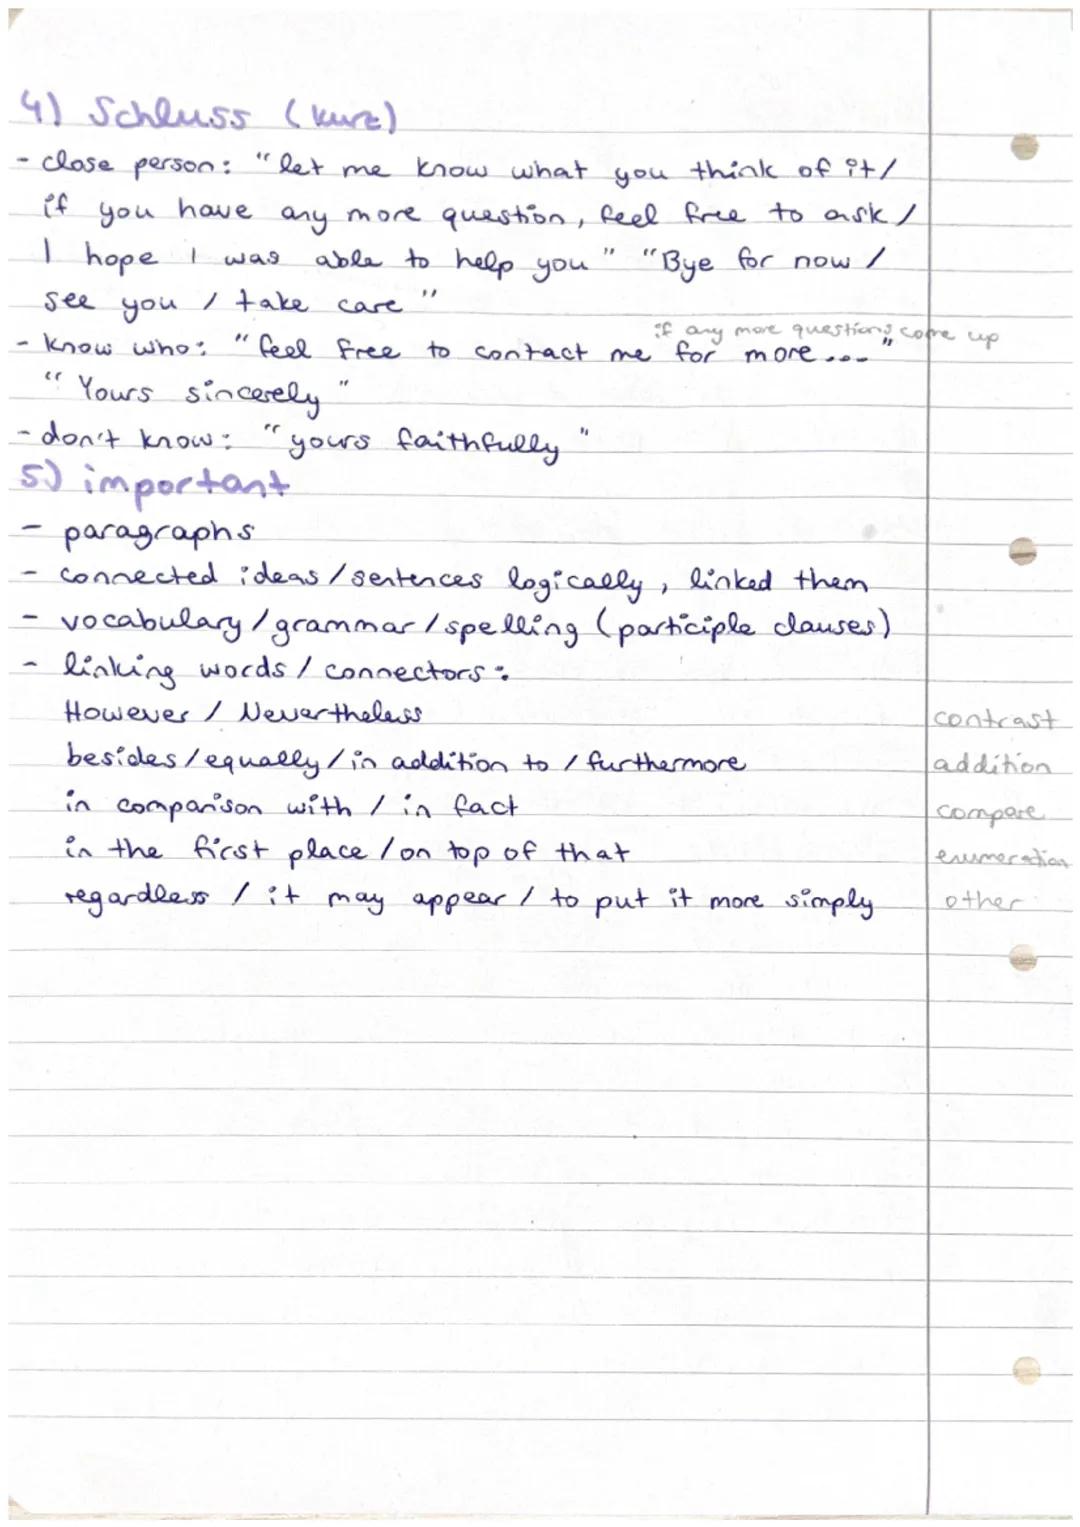 4) Schluss (kurz)
- close person: "let me know what you think of it/
if you have any more question, feel free to ask /
I hope I was able to help you" "Bye for now /
see you / take care"
if any more questions come up
- know who: "feel free to contact me for more..."
"Yours sincerely"
- don't know: "yours faithfully"
5) important
- paragraphs
- connected ideas/sentences logically, linked them
- vocabulary/grammar/spelling (participle clauses)
- linking words / connectors:
However / Nevertheless contrast
besides/equally/in addition to / furthermore addition
in comparison with / in fact compare
in the first place / on top of that enumeration
regardless / it may appear / to put it more simply other